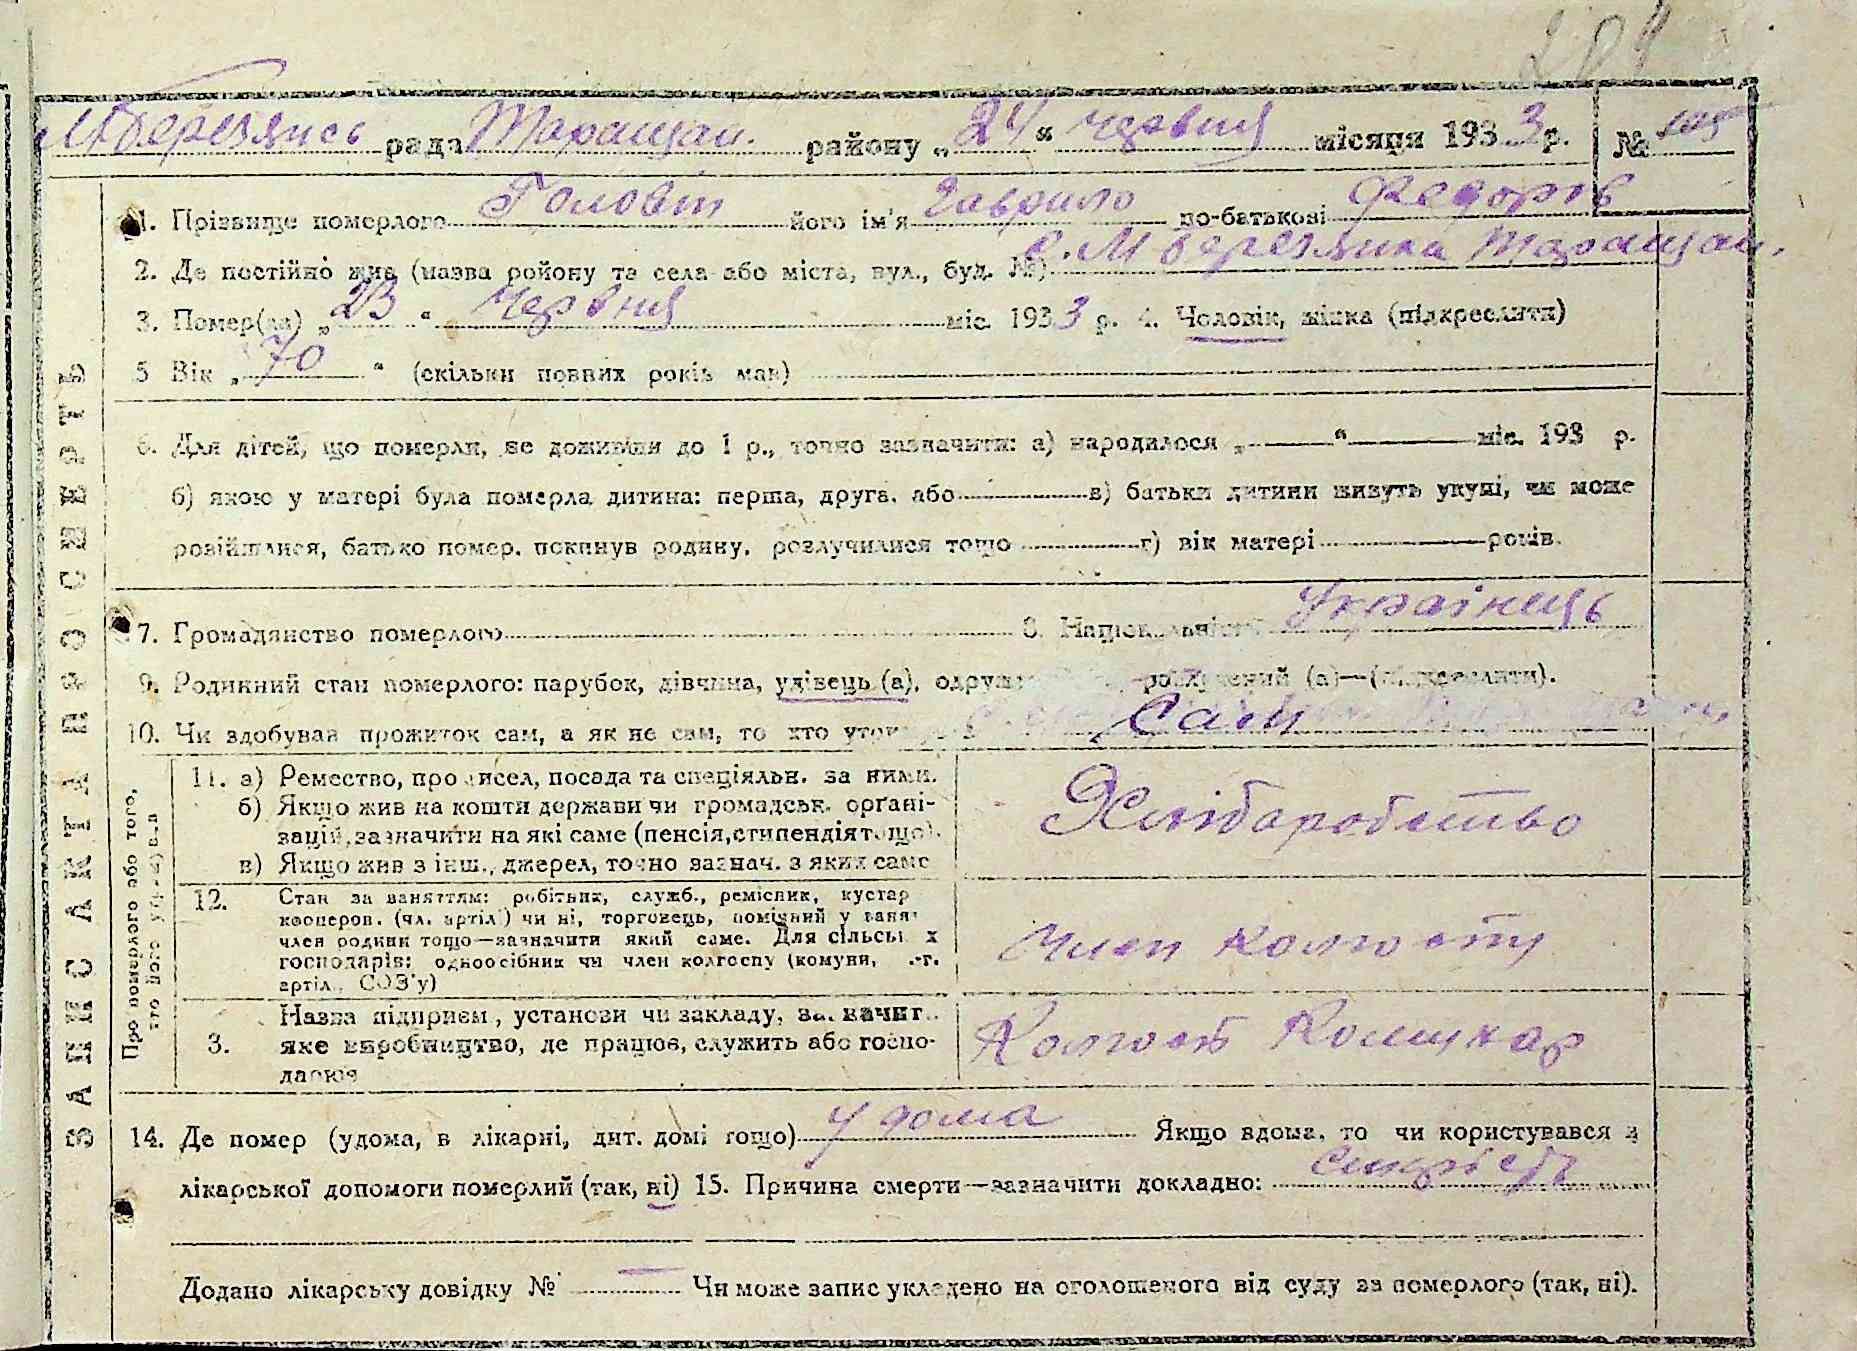 М Березянсь рада Таращан. району „24“ червня місяця 1933 р. №
1. Прізвище померлого Головін його ім'я Гаврило по-батькові Федоров
2. Де постійно жив (назва ройону та села або міста, вул., буд. №) с. М Березянка Таращан.
3. Помер(ла) „23“ Червня міс. 1933 р. 4. Чоловік, жінка (підкреслити)
5 Вік „70“ (скільки повних років мав)
6. Для дітей, що померли, не доживши до 1 р., точно зазначити: а) народилося „ “ міс. 193 р.
б) якою у матері була померла дитина: перша, друга, або в) батьки дитини живуть укупі, чи може
розійшлися, батько помер, покинув родину, розлучилися тощо г) вік матері років.
7. Громадянство померлого 8. Національність Українець
9. Родинний стан померлого: парубок, дівчина, удівець (а), одруж розлучений (а)—(підкреслити).
10. Чи здобував прожиток сам, а як не сам, то хто утри Сам
ЗАПИС АКТІВ ПРО СМЕРТЬ
Про померлого або того, хто його
11. а) Ремество, промисел, посада та спеціяльн. за ними.
б) Якщо жив на кошти держави чи громадськ. орґані-
зацій, зазначити на які саме (пенсія, стипендія тощо).
в) Якщо жив з інш., джерел, точно зазнач. з яких саме
Хліборобство
12. Стан за заняттям: робітник, служб., ремісник, кустар
кооперов. (чл. артілі) чи ні, торговець, помічний у занят
член родини тощо—зазначити який саме. Для сільськ х
господарів: одноосібник чи член колгоспу (комуни, с.-г.
артіл., СОЗ'у)
Член колгоспу
3. Назва підприєм., установи чи закладу, зазначит.
яке виробництво, де працює, служить або госпо-
дарює
Колгосп
14. Де помер (удома, в лікарні, дит. домі тощо) у дома Якщо вдома, то чи користувався з
лікарської допомоги померлий (так, ні) 15. Причина смерти—зазначити докладно:
Додано лікарську довідку № — Чи може запис укладено на оголошеного від суду за померлого (так, ні).